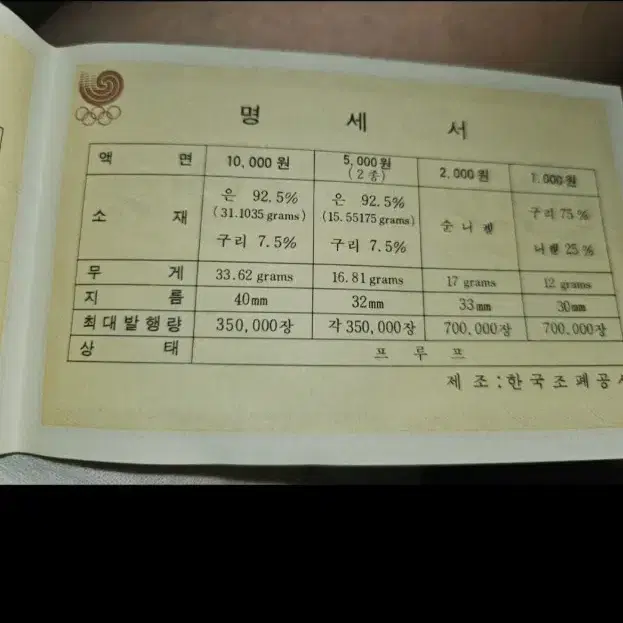 명 세 서
액 면 10,000원 5,000원 2,000원 1,000원
(2종)
소 재 은 92.5% 은 92.5% 순 니켈 구리 75%
(31.1035 grams) (15.55175 grams)
구리 7.5% 구리 7.5% 니켈 25%
무 게 33.62 grams 16.81 grams 17 grams 12 grams
지 름 40mm 32mm 33mm 30mm
최대발행량 350,000장 각350,000장 700,000장 700,000장
상 태 프 루 프
제 조 : 한국조폐공